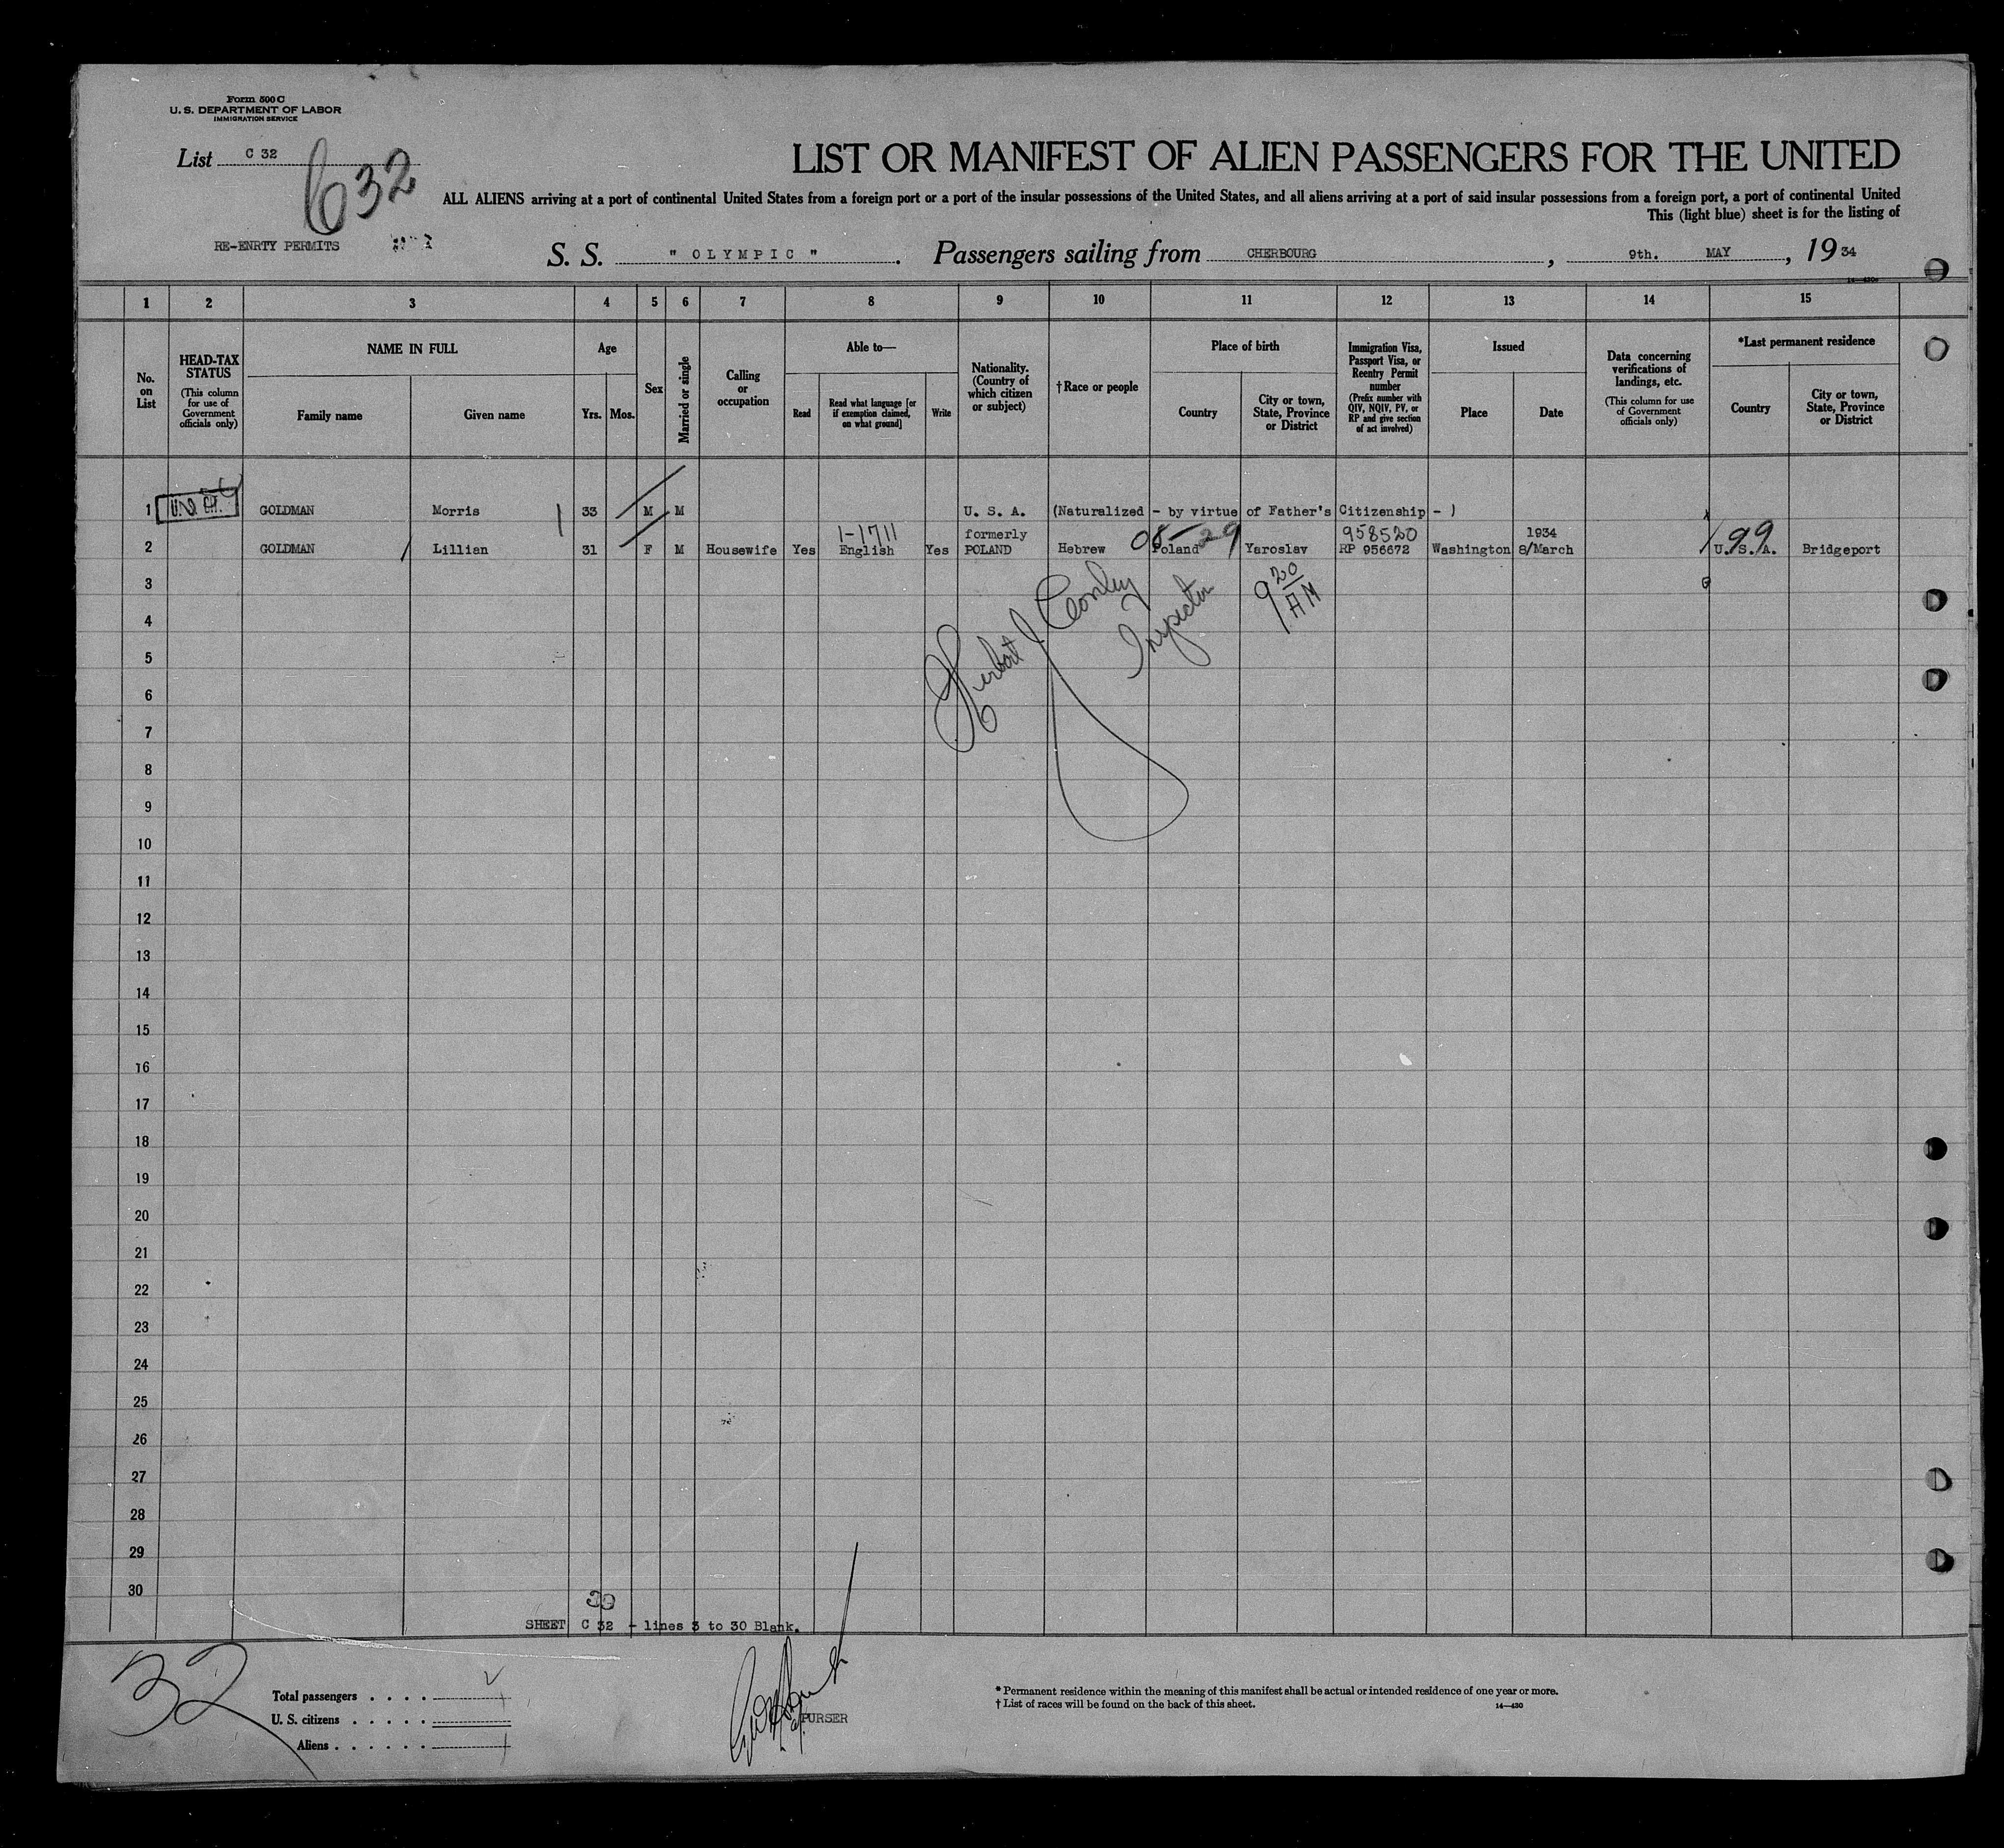 Form 500 C
U. S. DEPARTMENT OF LABOR
IMMIGRATION SERVICE
List C 32
C 32
LIST OR MANIFEST OF ALIEN PASSENGERS FOR THE UNITED
ALL ALIENS arriving at a port of continental United States from a foreign port or a port of the insular possessions of the United States, and all aliens arriving at a port of said insular possessions from a foreign port, a port of continental United
This (light blue) sheet is for the listing of
RE-ENRTY PERMITS
S. S. " OLYMPIC " . Passengers sailing from CHERBOURG , 9th. MAY , 19 34
14—430
1 2 3 4 5 6 7 8 9 10 11 12 13 14 15
No. on List
HEAD-TAX STATUS
(This column for use of Government officials only)
NAME IN FULL
Family name Given name
Age
Yrs. Mos.
Sex
Married or single
Calling or occupation
Able to—
Read
Read what language [or if exemption claimed, on what ground]
Write
Nationality. (Country of which citizen or subject)
†Race or people
Place of birth
Country
City or town, State, Province or District
Immigration Visa, Passport Visa, or Reentry Permit number
(Prefix number with QIV, NQIV, PV, or RP and give section of act involved)
Issued
Place Date
Data concerning verifications of landings, etc.
(This column for use of Government officials only)
*Last permanent residence
Country
City or town, State, Province or District
1 GOLDMAN Morris 33 M M U. S. A. (Naturalized - by virtue of Father's Citizenship - )
1-1711 formerly 08-29 958520 1934 99
2 GOLDMAN Lillian 31 F M Housewife Yes English Yes POLAND Hebrew Poland Yaroslav RP 956672 Washington 8/March U. S. A. Bridgeport
3
Herbert J Conley Inspector 9 20 AM
4
5
6
7
8
9
10
11
12
13
14
15
16
17
18
19
20
21
22
23
24
25
26
27
28
29
30
30
SHEET C 32 - lines 3 to 30 Blank.
32
Total passengers . . . .
U. S. citizens . . . . .
Aliens . . . . . .
PURSER
* Permanent residence within the meaning of this manifest shall be actual or intended residence of one year or more.
† List of races will be found on the back of this sheet.
14—430